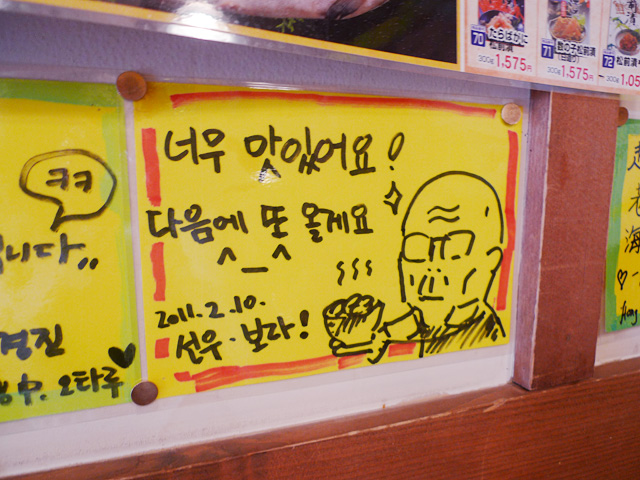 70 たらばがに
松前漬
300g 1,575円
71 数の子松前漬
300g 1,575円
72 松前漬
300g 1,05
너우 맛있어요!
다음에 또 올게요
^_^
2011.2.10.
선우·보라!
ㅋㅋ
니다,,
경진
오타루
海